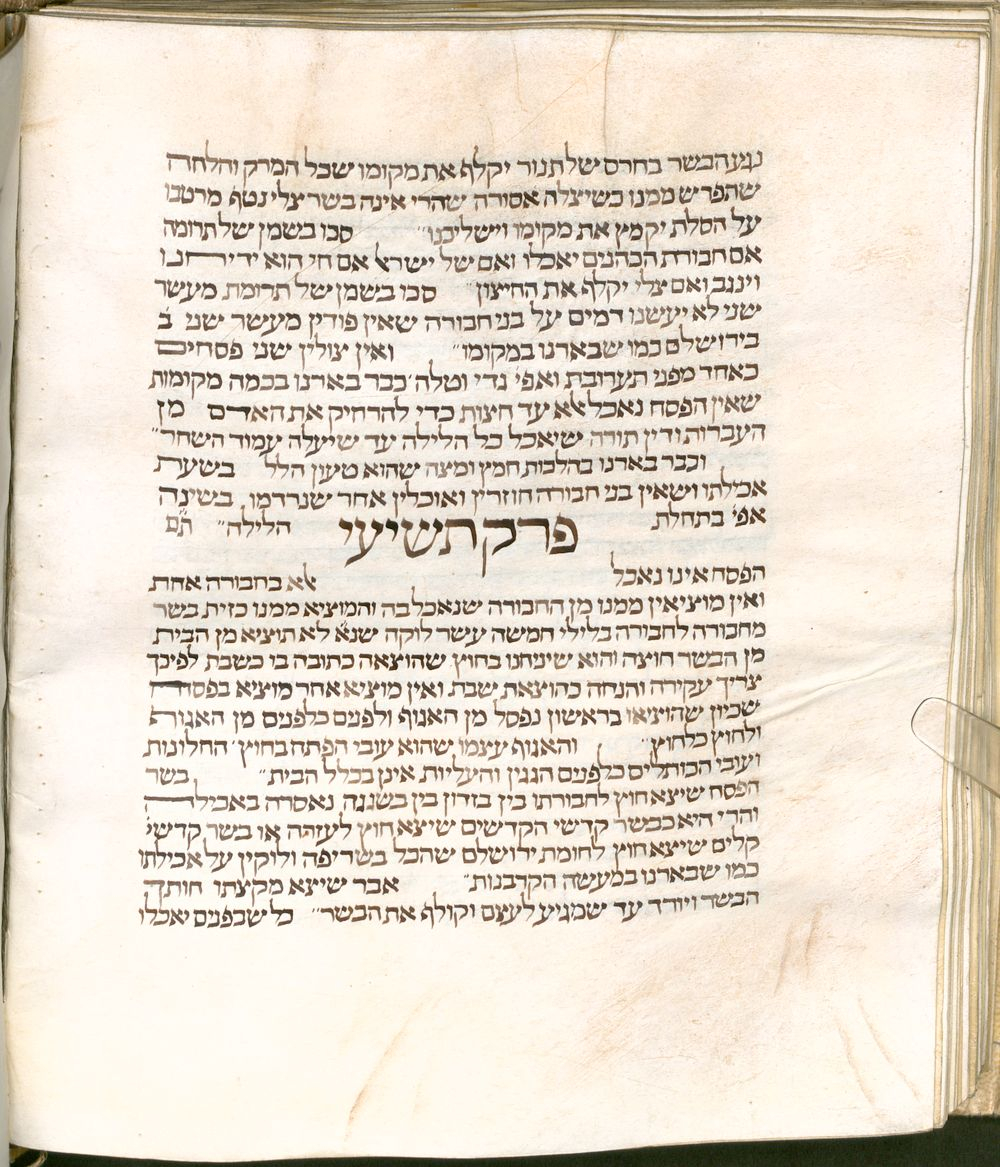 נגע הבשר בחרס של תנור יקלף את מקומו שכל המרק והלחה
שהפרש ממנו כשיצלה אסורה שהרי אינה בשר צלי נטף מרטבו
על הסלת יקמץ את מקומו וישליכנו״ סכו בשמן של תרומה
אם חבורת הכהנים יאכלו ואם של ישראל אם חי הוא ידיחנו
וינגב ואם צלי יקלף את החיצון״ סכו בשמן של תרומת מעשר
שני לא יעשנו דמים על בני חבורה שאין פודין מעשר שני ב
בירושלם כמו שבארנו במקומו״ ואין צולין שני פסחים
כאחד מפני תערובת ואפי׳ גדי וטלה׳ כבר בארנו בכמה מקומות
שאין הפסח נאכל אלא עד חצות כדי להרחיק את האדם מן
העברות ודין תורה שיאכל כל הלילה עד שיעלה עמוד השחר״
וכבר בארנו בהלכות חמץ ומצה שהוא טעון הלל בשעת
אכילתו ושאין בני חבורה חוזרין ואוכלין אחר שנרדמו בשינה
אפי׳ בתחלת הלילה״
פרק תשיעי
הפסח אינו נאכל לא בחבורה אחת
ואין מוציאין ממנו מן החבורה שנאכל בה והמוציא ממנו כזית בשר
מחבורה לחבורה בלילי חמשה עשר לוקה שנא׳ לא תוציא מן הבית
מן הבשר חוצה והוא שיניחנו בחוץ שהוצאה כתובה בו כשבת לפיכך
צריך עקירה והנחה כהוצאת שבת ואין מוציא אחר מוציא בפסח
שכיון שהוציאו בראשון נפסל מן האגוף ולפנים כלפנים מן האגוף
ולחוץ כלחוץ״ והאגוף עצמו שהוא עובי הפתח בחוץ׳ החלונות
ועובי הכותלים כלפנים הגגין והעליות אינן בכלל הבית״ בשר
הפסח שיצא חוץ לחבורתו בין בזדון בין בשגגה נאסרה באכילה
והרי היא כבשר קדשי הקדשים שיצא חוץ לעזרה או בשר קדשי
קלים שיצא חוץ לחומת ירושלם שהכל בשריפה ולוקין על אכילתו
כמו שבארנו במעשה הקרבנות״ אבר שיצא מקצתו חותך
הבשר ויורד עד שמגיע לעצם וקולף את הבשר״ כל שבפנים יאכלו